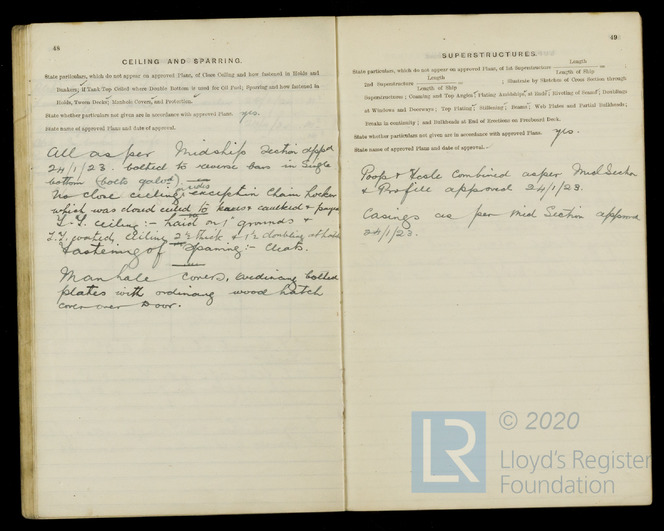 48
CEILING AND SPARRING.
State particulars, which do not appear on approved Plans, of Close Ceiling and how fastened in Holds and
Bunkers; if Tank Top Ceiled where Double Bottom is used for Oil Fuel; Sparring and how fastened in
Holds, Tween Decks; Manhole Covers, and Protection.
State whether particulars not given are in accordance with approved Plans. yes.
State name of approved Plans and date of approval.
All as per Midship Section appd
24/1/23. bolted to reverse bars in Single
bottom (bolts galvd)
No close ceiling sides except in Chain Locker
which was closed ceiled to & caulked &
T.T. ceiling:- laid on 1" grounds &
Ceiling 2½ thick & 1½ doubling at
Fastening of Sparring:- Cleats.
Manhole covers, ordinary bolted
plates with ordinary wood hatch
cover over Door.
49
SUPERSTRUCTURES.
State particulars, which do not appear on approved Plans, of 1st Superstructure Length / Length of Ship = ;
2nd Superstructure Length / Length of Ship = ; Illustrate by Sketches of Cross Section through
Superstructures; Coaming and Top Angles; Plating Amidships, at Ends; Riveting of Same; Doublings
at Windows and Doorways; Top Plating; Stiffening; Beams; Web Plates and Partial Bulkheads;
Breaks in continuity; and Bulkheads at End of Erections on Freeboard Deck.
State whether particulars not given are in accordance with approved Plans. yes.
State name of approved Plans and date of approval.
Poop & Fcsle Combined as per Mid Section
& Profile approved 24/1/23.
Casings as per Mid Section approved
24/1/23.
LR
© 2020
Lloyd's Register
Foundation